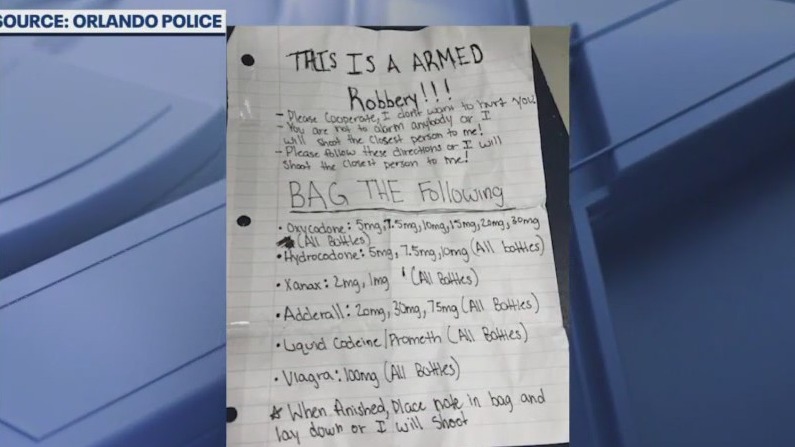 SOURCE: ORLANDO POLICE
THIS IS A ARMED
Robbery!!!
- Please Cooperate, I dont want to hurt you!
- You are not to alarm anybody or I
will shoot the closest person to me!
- Please follow these directions or I will
shoot the closest person to me!
BAG THE Following
• Oxycodone: 5mg, 7.5mg, 10mg, 15mg, 20mg, 30mg
(All Bottles)
• Hydrocodone: 5mg, 7.5mg, 10mg (All bottles)
• Xanax: 2mg, 1mg (All Bottles)
• Adderall: 20mg, 30mg, 75mg (All Bottles)
• Liquid Codeine/Prometh (All Bottles)
• Viagra: 100mg (All Bottles)
☆ When finished, place note in bag and
lay down or I will shoot